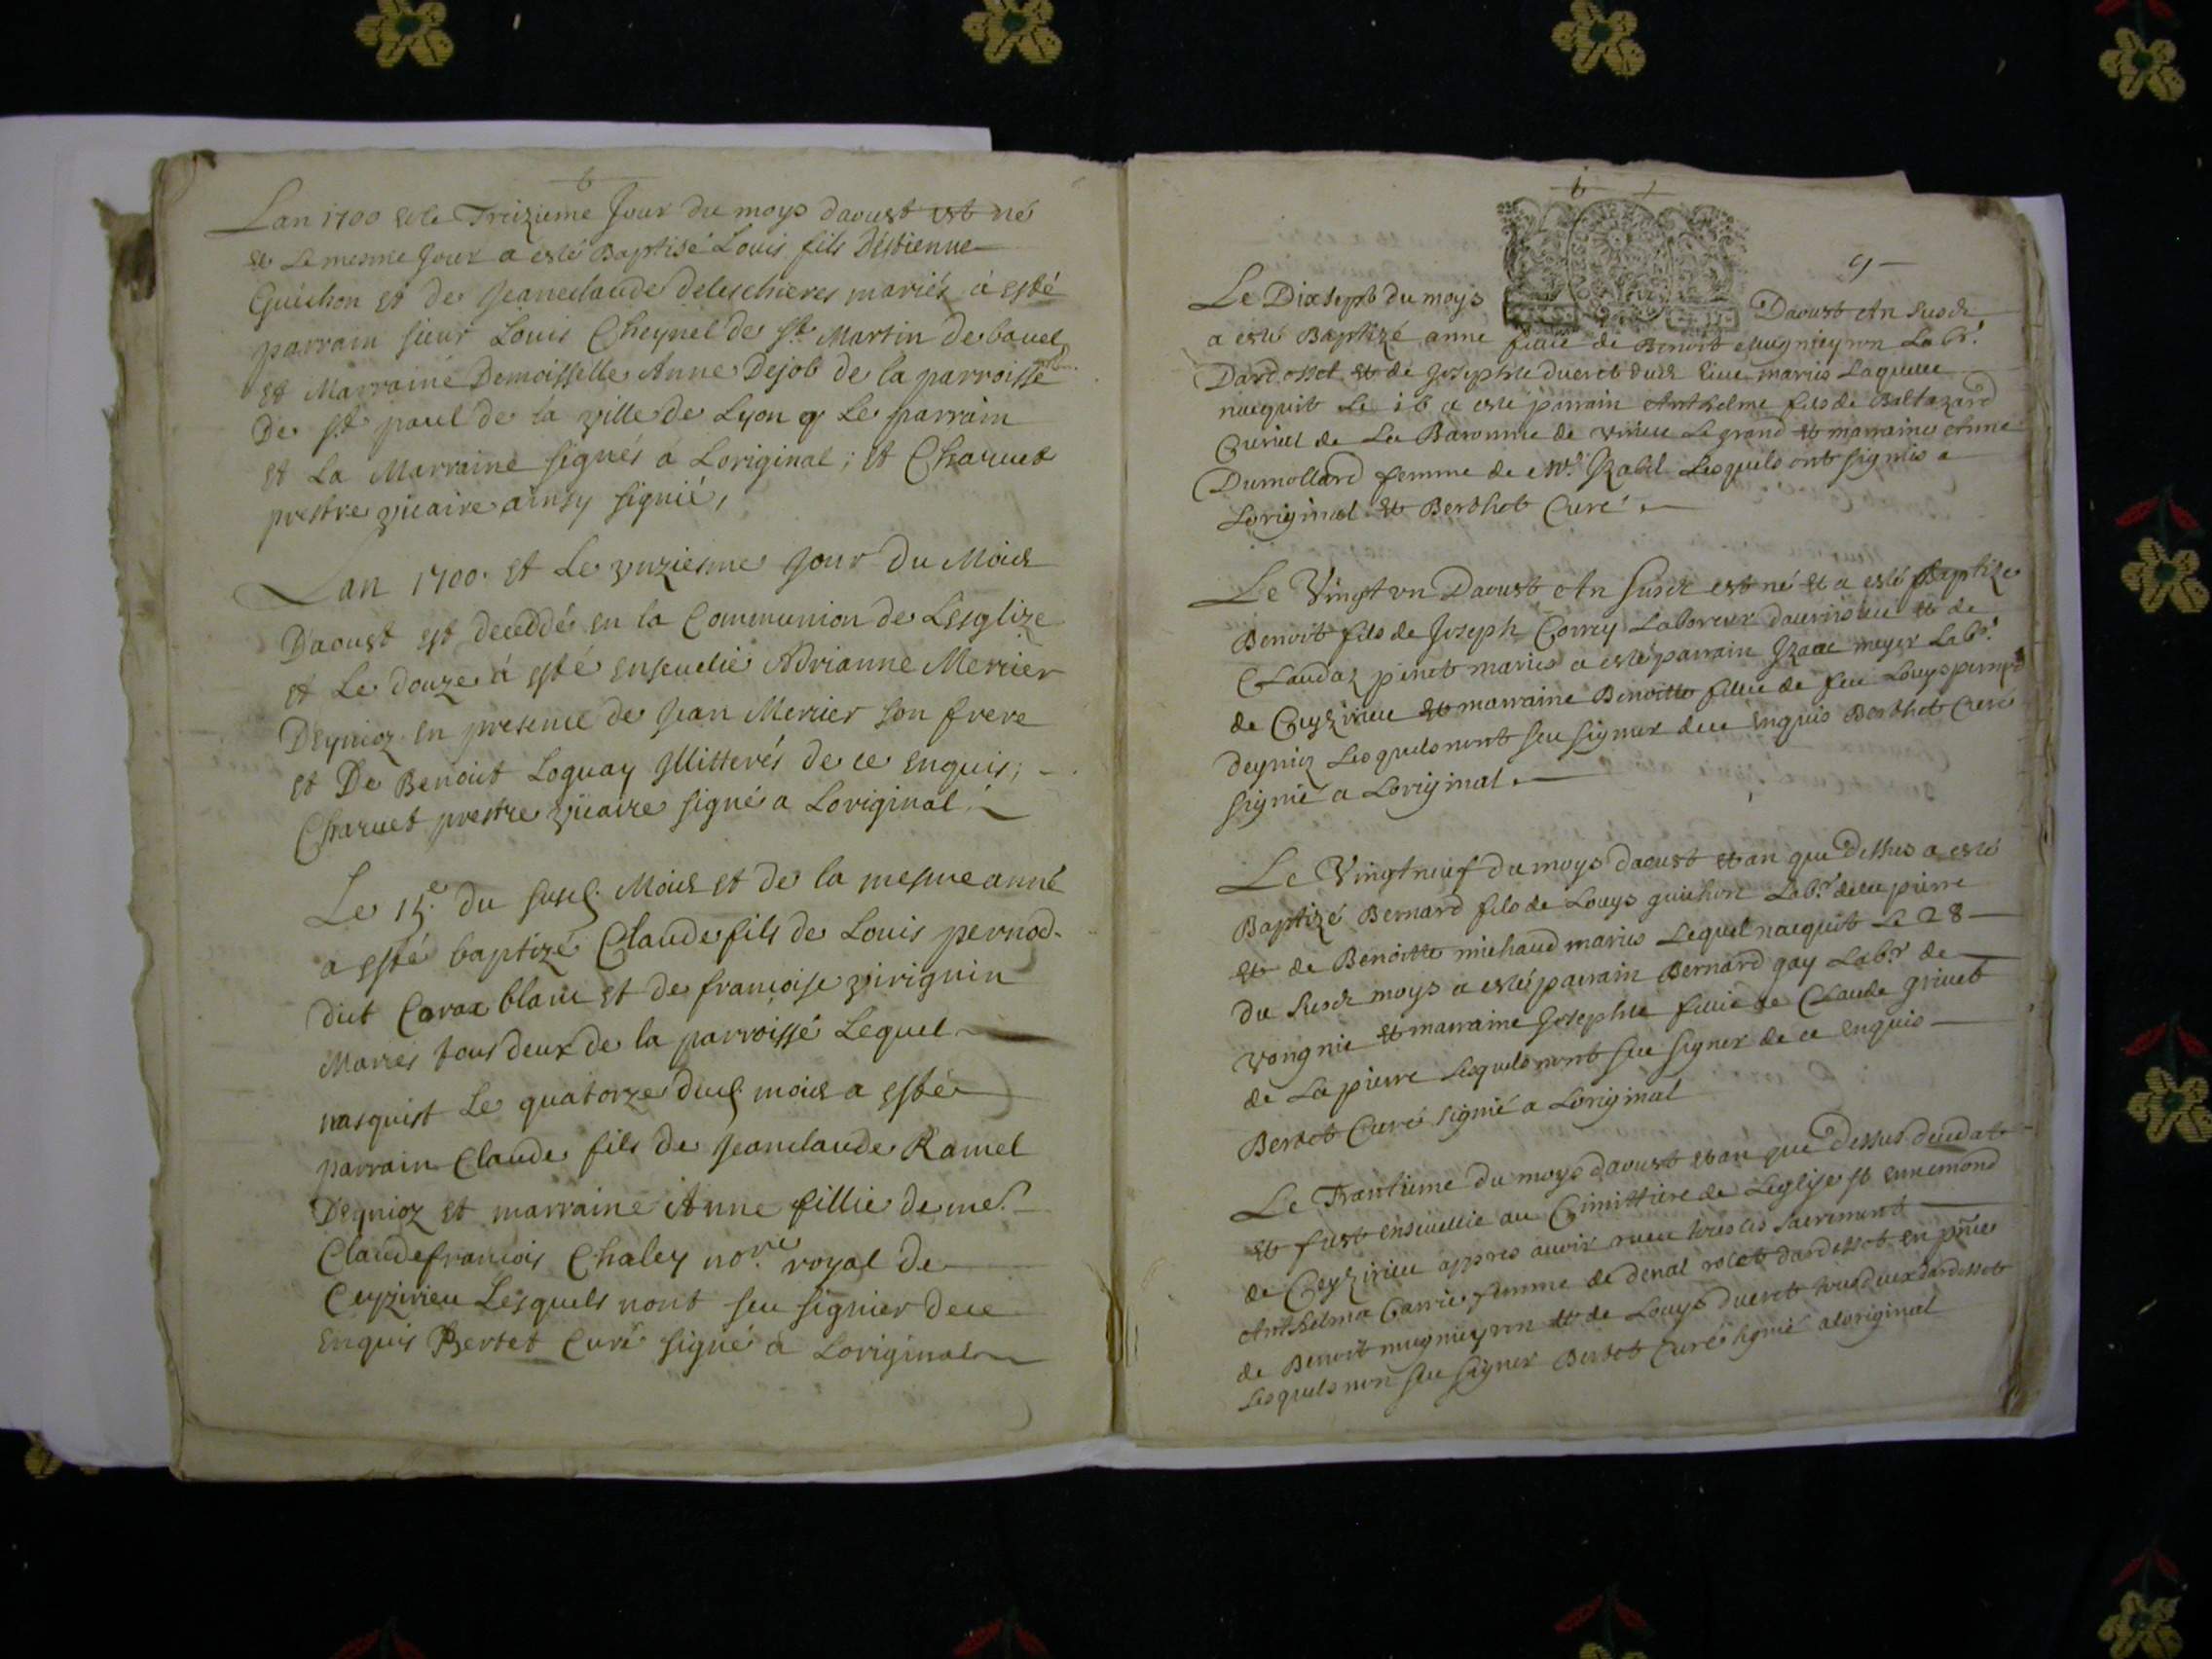 Lan 1700 et le Treizieme Jour du moys daoust est né
et Le mesme Jour a esté Baptisé Louis fils Déstienne
Guichon et de Jeaneclaude deleschieres mariés à esté
parrain sieur Louis Cheynel de st Martin de bavel
et Marraine Demoisselle Anne Dejob de la parroisse
De st paul de la ville de Lyon q Le parrain
et La Marraine signés a Loriginal; et Charvet
prestre viicaire ainsy signié,
Lan 1700 et Le unziesme Jour Du Mois
Daoust est deceddé en la Communion de Lesglize
et Le douze à esté ensevelie Adrianne Mercier
Deynioz en presence de Jean Mercier son frere
et De Benoict Loguay Illitterés de ce enquis;
Charvet prestre viicaire signé a Loriginal
Le 15e du susd. Mois et de la mesme anné
a esté baptizé Claude fils de Louis pernod
dict Carax blanc et de francoise virignin
Maries tous deux de la parroisse Lequel
nasquist Le quatorze dud. mois a esté
parrain Claude fils de Jeanclaude Ramel
Deynioz et marraine Anne fillie de me.
Claudefrancois Chaley nore. royal de
Ceyzirieu Lesquels nont seu signier de ce
enquis Bertet Curé signé à Loriginal
9
Le Dixsept du moys Daoust An susd
a esté Baptizé anne fillie de Benoit Mugnieyron Labr.
Dardosset et de Josephte dueret dud lieu mariés Laquelle
nacquit Le 16 a esté parrain Anthelme fils de Baltazard
Curiel de La Baronnie de virieu Le grand et marraine Anne
Dumollard femme de Mr. Izabel Lesquels ont signés a
Loriginal et Berthet Curé
Le Vingt un Daoust An susd est né et a esté Baptizé
Benoit fils de Joseph Correy Laboreur davrissieu et de
Claudaz pinet mariés a esté parrain Izaac meyer Labr.
de Ceyzirieu et marraine Benoitte fillie de feu Louys
deynioz Lesquels nont seu signer de ce enquis Berthet Curé
signié a Loriginal
Le Vingt neuf du moys daoust et an que Dessus a esté
Baptizé Bernard fils de Louys guichon Labr. de la pierre
et de Benoitte michaud mariés Lequel nacquit Le 28
du susd moys a esté parrain Bernard gay Labr. de
vongnie et marraine Josephte fillie de Claude grivet
de La pierre Lesquels nont seu signer de ce enquis
Bertet Curé signié a Loriginal
Le Trantieme du moys daoust et an que Dessus deceda
et fust ensevellie au Cimittiere de Leglise st ennemond
de Ceyzirieu appres avoir receu tous les sacrement
Anthelma Carrie femme de denal rolet dardosset en pnce
de Benoit mugnieyron et de Louys dueret tous deux dardosset
Lesquels non seu signer Bertet Curé signié a loriginal